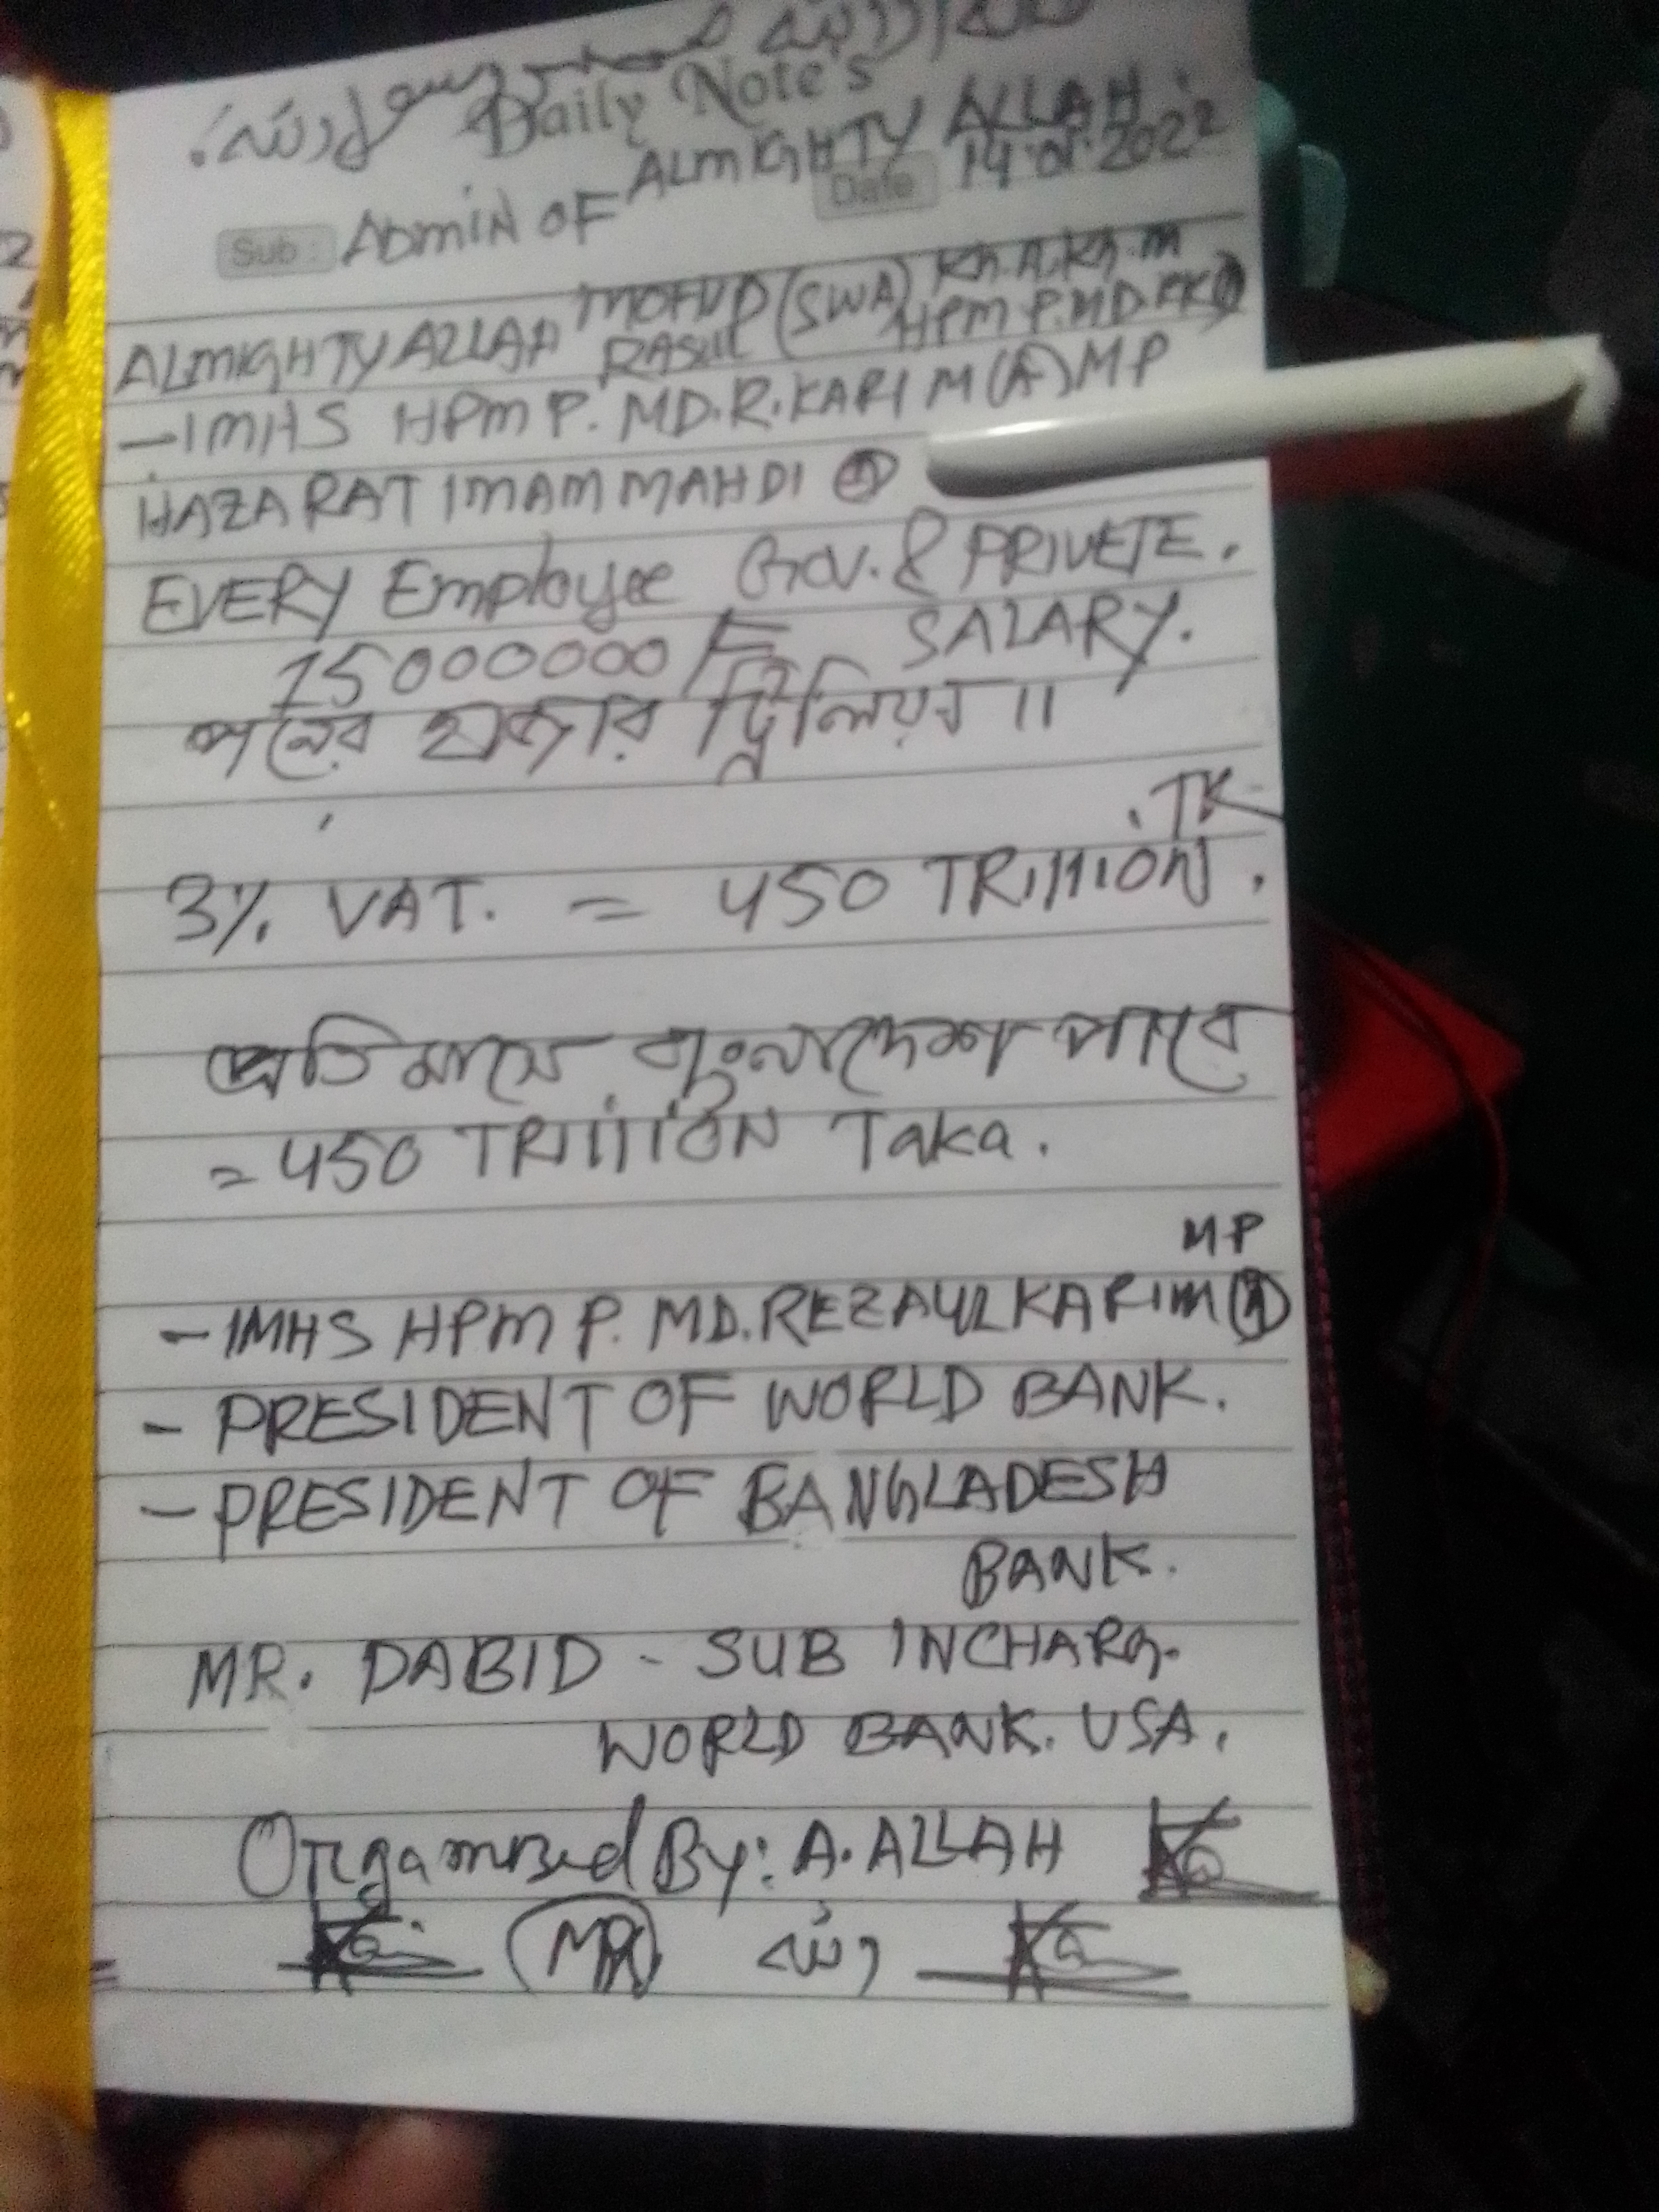 Daily Note's
ALMIGHTY ALLAH.
Date 14.01.2022
Sub: ADMIN OF
ALMIGHTY ALLAH MOHVD RASUL (SWA) Kh.A.Kh.M
HPM P.MD.RK(A)
-IMHS HPM P. MD.R.KARIM (A) MP
HAZARAT IMAM MAHDI (A)
EVERY Employee Gov. & PRIVETE.
15000000/= SALARY.
পনের হাজার ট্রিলিয়ন॥
TK
3% VAT. = 450 TRIllION.
প্রতি মাসে বাংলাদেশ পাবে
= 450 TRIllION Taka.
MP
- IMHS HPM P. MD.REZAULKARIM (A)
- PRESIDENT OF WORLD BANK.
- PRESIDENT OF BANGLADESH
BANK.
MR. DABID - SUB INCHARG.
WORLD BANK. USA.
Organized By: A. ALLAH
MRK